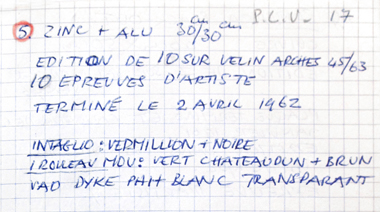 5. ZINC + ALU 30cm/30cm P.L.V - 17
EDITION DE 10 SUR VELIN ARCHES 45/63
10 EPREUVES D'ARTISTE
TERMINÉ LE 2 AVRIL 1962
INTAGLIO : VERMILLION + NOIRE
1 ROULEAU MOU : VERT CHATEAUDUN + BRUN
VAD DYKE PAH BLANC TRANSPARANT